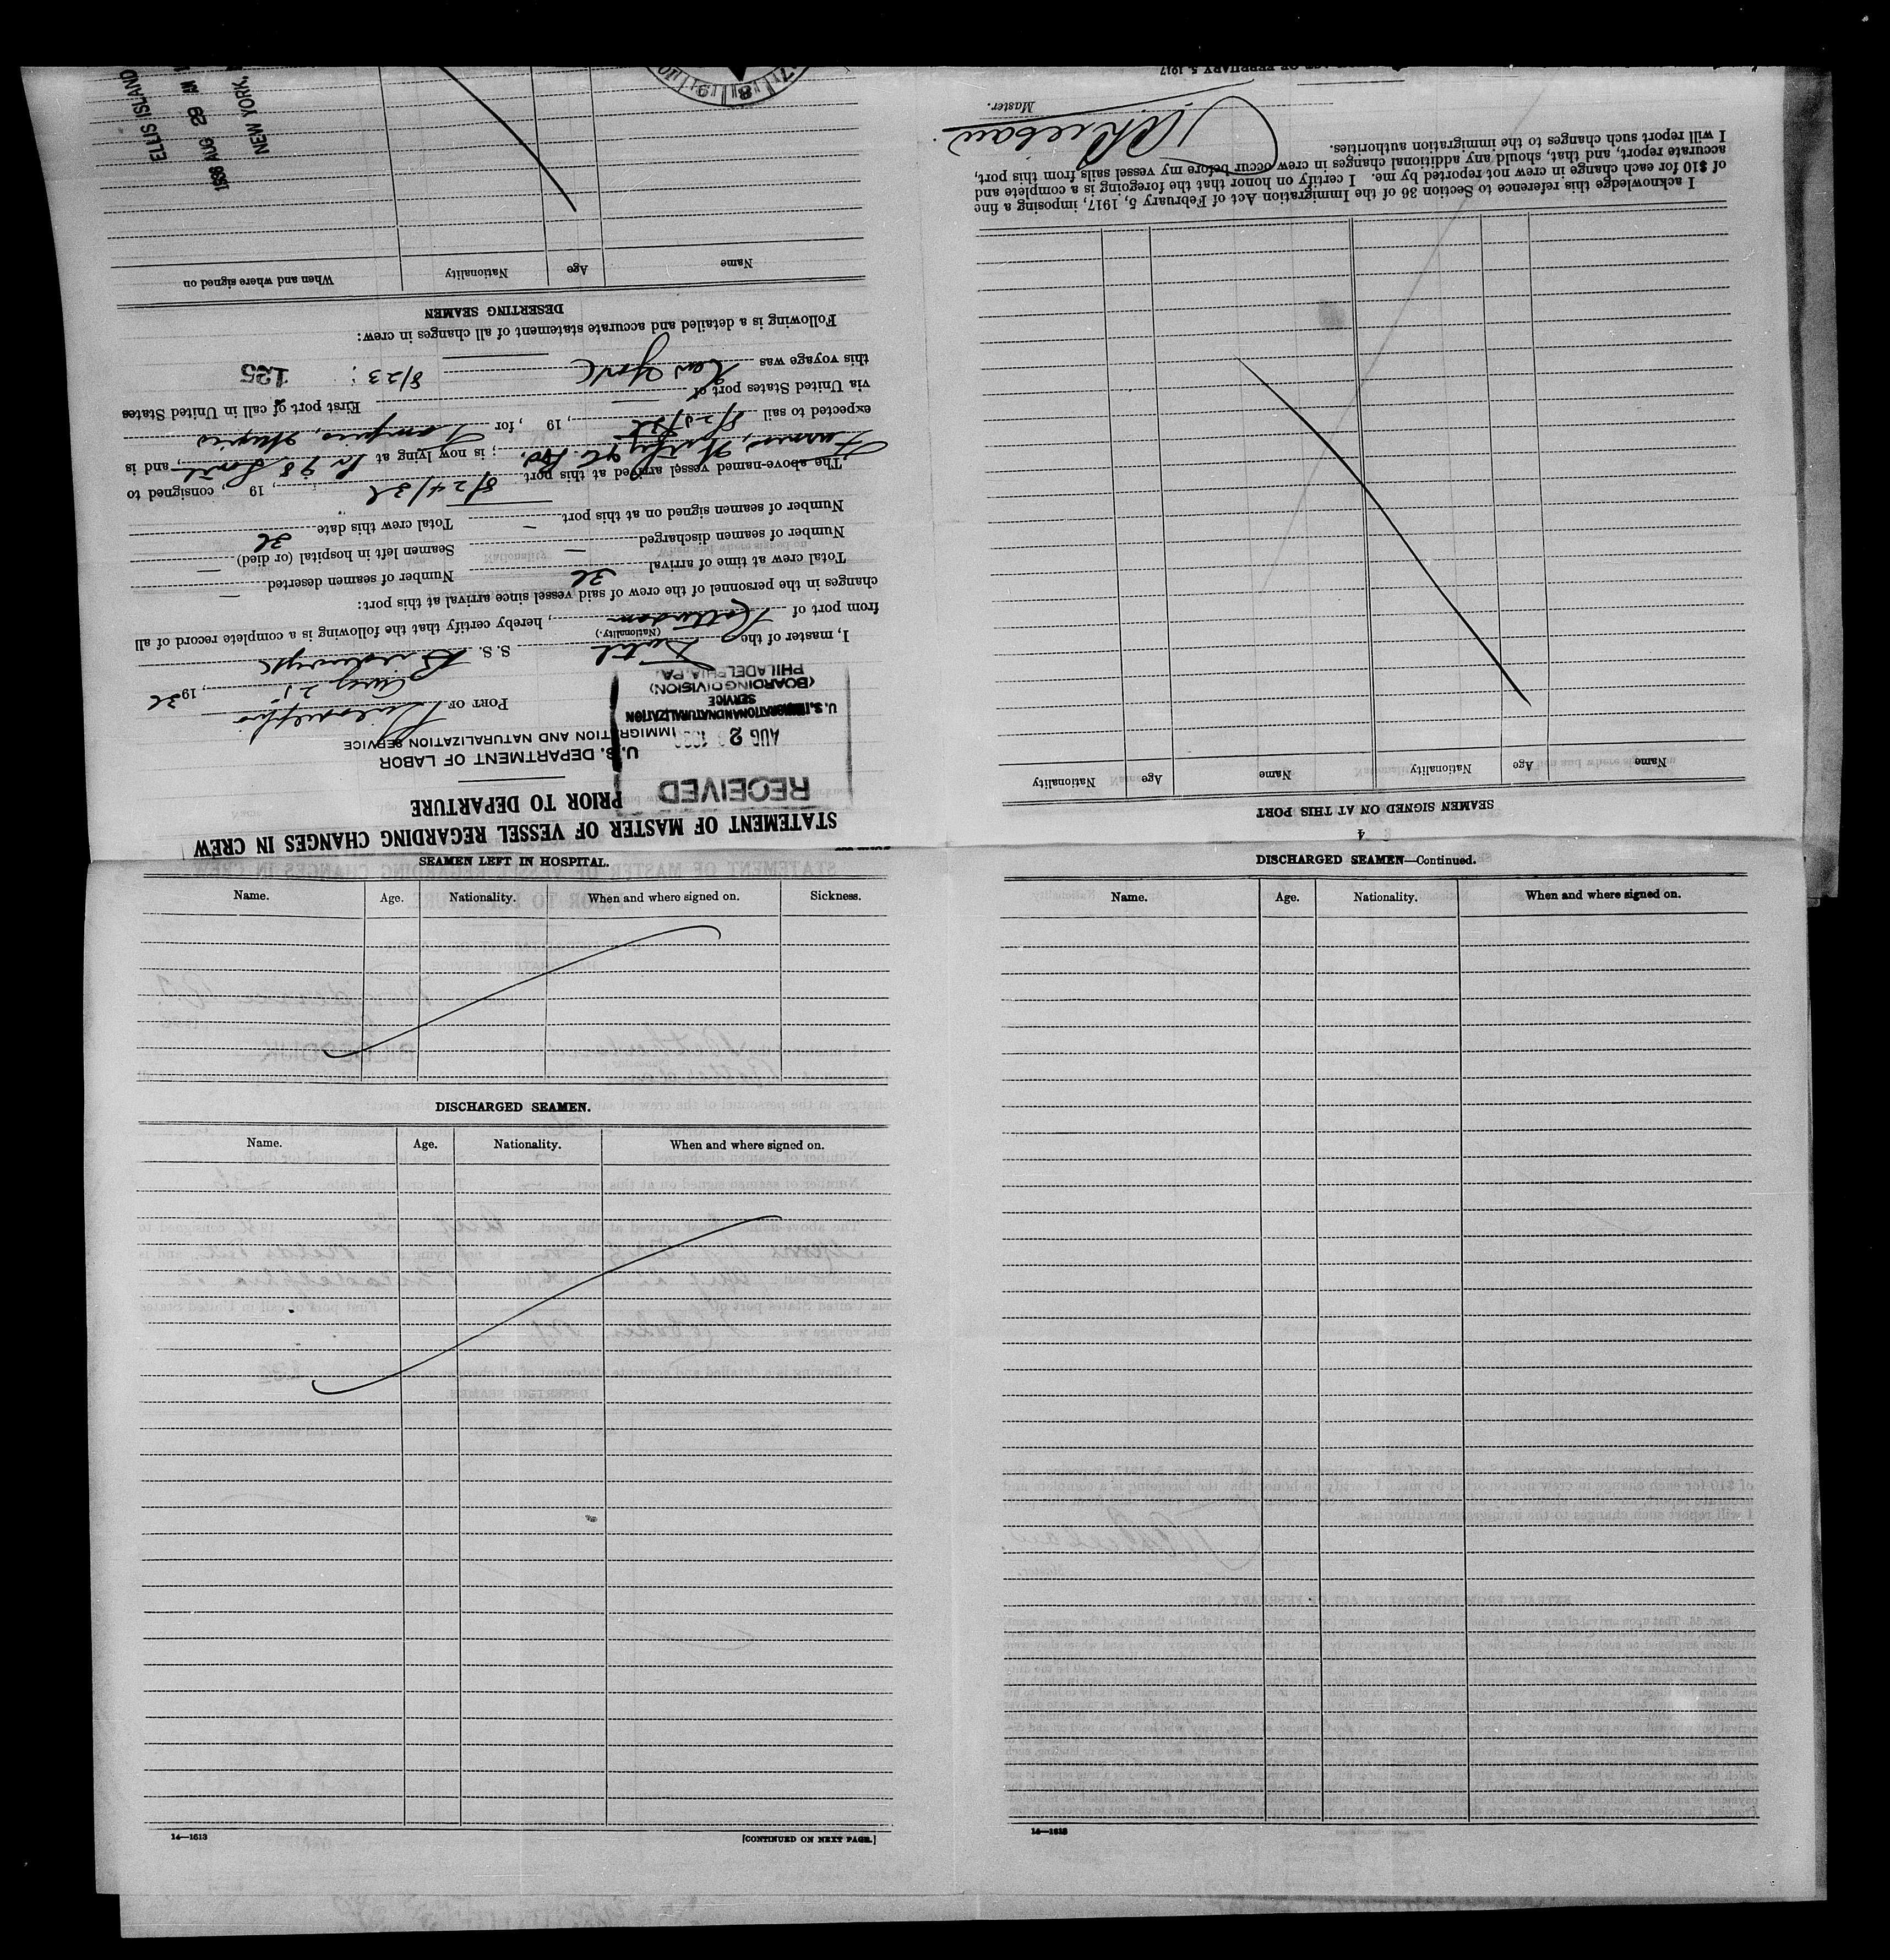 STATEMENT OF MASTER OF VESSEL REGARDING CHANGES IN CREW
PRIOR TO DEPARTURE
RECEIVED
AUG 2
U. S. IMMIGRATION AND NATURALIZATION
SERVICE
(BOARDING DIVISION)
PHILADELPHIA, PA.
U.S. DEPARTMENT OF LABOR
IMMIGRATION AND NATURALIZATION SERVICE
PORT OF Philadelphia
Aug 25, 1936
I, master of the Dutch S. S.
(Nationality.)
from port of Rotterdam, hereby certify that the following is a complete record of all
changes in the personnel of the crew of said vessel since arrival at this port:
Total crew at time of arrival 36 Number of seamen deserted —
Number of seamen discharged — Seamen left in hospital (or died) —
Number of seamen signed on at this port — Total crew this date 36
The above-named vessel arrived at this port 8/24/36, 19 , consigned to
; is now lying at Pr 98 South, and is
expected to sail 8/25/36, 19 , for Tampico, Mexico
via United States port of — First port of call in United States
this voyage was New York 8/23 ; 125
Following is a detailed and accurate statement of all changes in crew:
DESERTING SEAMEN
Name Age Nationality When and where signed on
ELLIS ISLAND
1936 AUG 29 AM
NEW YORK,
7 8 9 10
4
SEAMEN SIGNED ON AT THIS PORT
Name Age Nationality Name Age Nationality
I acknowledge this reference to Section 36 of the Immigration Act of February 5, 1917, imposing a fine
of $10 for each change in crew not reported by me. I certify on honor that the foregoing is a complete and
accurate report, and that, should any additional changes in crew occur before my vessel sails from this port,
I will report such changes to the immigration authorities.
Master.
ACT OF FEBRUARY 5, 1917
SEAMEN LEFT IN HOSPITAL.
Name. Age. Nationality. When and where signed on. Sickness.
DISCHARGED SEAMEN.
Name. Age. Nationality. When and where signed on.
14—1613 [CONTINUED ON NEXT PAGE.]
DISCHARGED SEAMEN—Continued.
Name. Age. Nationality. When and where signed on.
14—1613